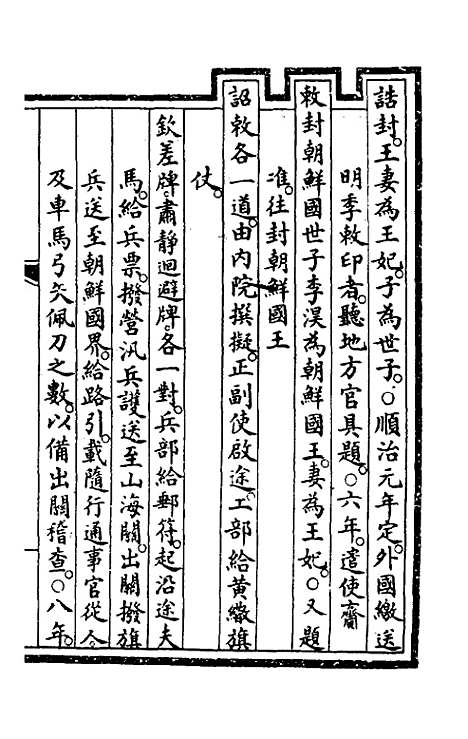 誥封。王妻為王妃。子為世子。○順治元年定。外國繳送
明季敕印者。聽地方官具題。○六年。遣使齎
敕封朝鮮國世子李淏為朝鮮國王。妻為王妃。○又題
准。往封朝鮮國王
詔敕各一道。由內院撰擬。正副使啟途。工部給黃繖旗
仗。
欽差牌。肅靜迴避牌。各一對。兵部給郵符。起沿途夫
馬。給兵票。撥營汛兵護送至山海關。出關撥旗
兵送至朝鮮國界。給路引。載隨行通事官從人。
及車馬弓矢佩刀之數。以備出關稽查。○八年。